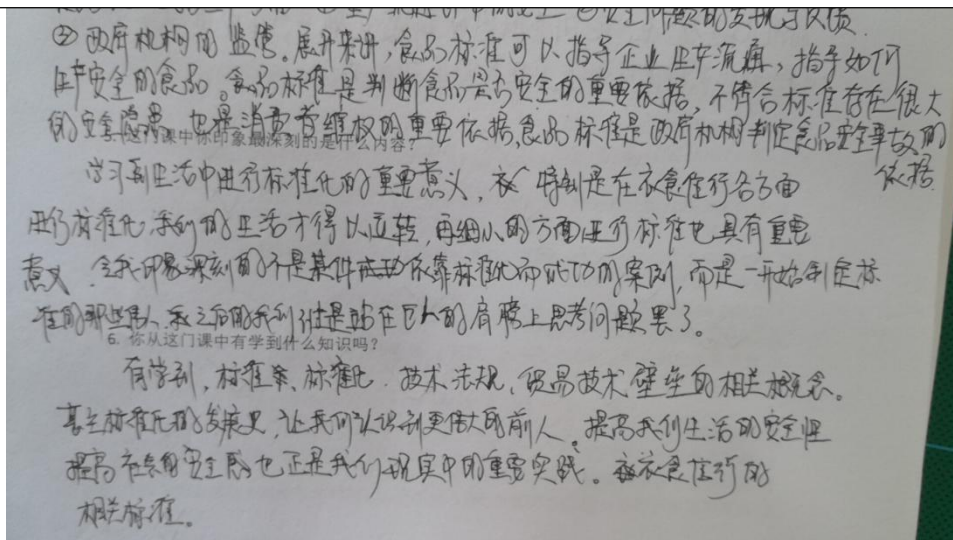 ②政府机构的监管。展开来讲,食品标准可以指导企业生产流痛,指导如何
生产安全的食品。食品标准是判断食品是否安全的重要依据,不符合标准存在很大
的安全隐患,也是消费者维权的重要依据,食品标准是政府机构判定食品安全事故的
依据.
5. 这门课中你印象最深刻的是什么内容?
学习到生活中进行标准化的重要意义,特别是在衣食住行各方面
进行标准化,我们的生活才得以运转,再细小的方面进行标准也具有重要
意义.令我印象深刻的不是某件依靠标准化而成功的案例,而是一开始制定标
准的那些人,之后的我们只是站在巨人的肩膀上思考问题罢了。
6. 你从这门课中有学到什么知识吗?
有学到,标准,标准化.技术法规,贸易技术壁垒的相关概念。
甚至标准化的发展史,让我们认识到更伟大的前人。提高我们生活的安全性
提高社会的安全感也正是我们现实中的重要实践。衣食住行的
相关标准。